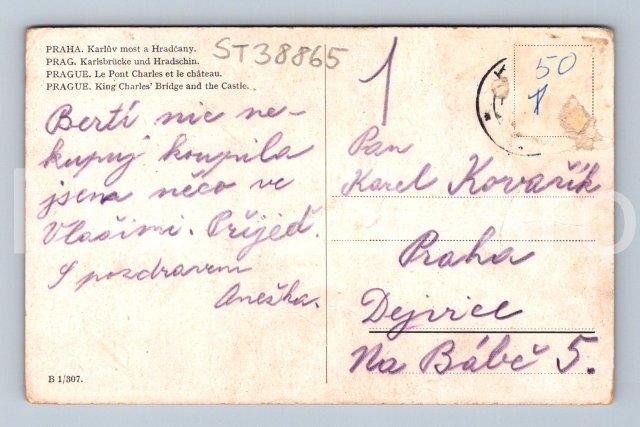 PRAHA. Karlův most a Hradčany.
PRAG. Karlsbrücke und Hradschin.
PRAGUE. Le Pont Charles et le château.
PRAGUE. King Charles' Bridge and the Castle.
ST38865
1
50
Bertí nic ne-
kupuj koupila
jsem něco ve
Vlašimi. Přijeď.
S pozdravem
Anežka.
Pan
Karel Kovařík
Praha
Dejvice
Na Bábě 5.
B 1/307.